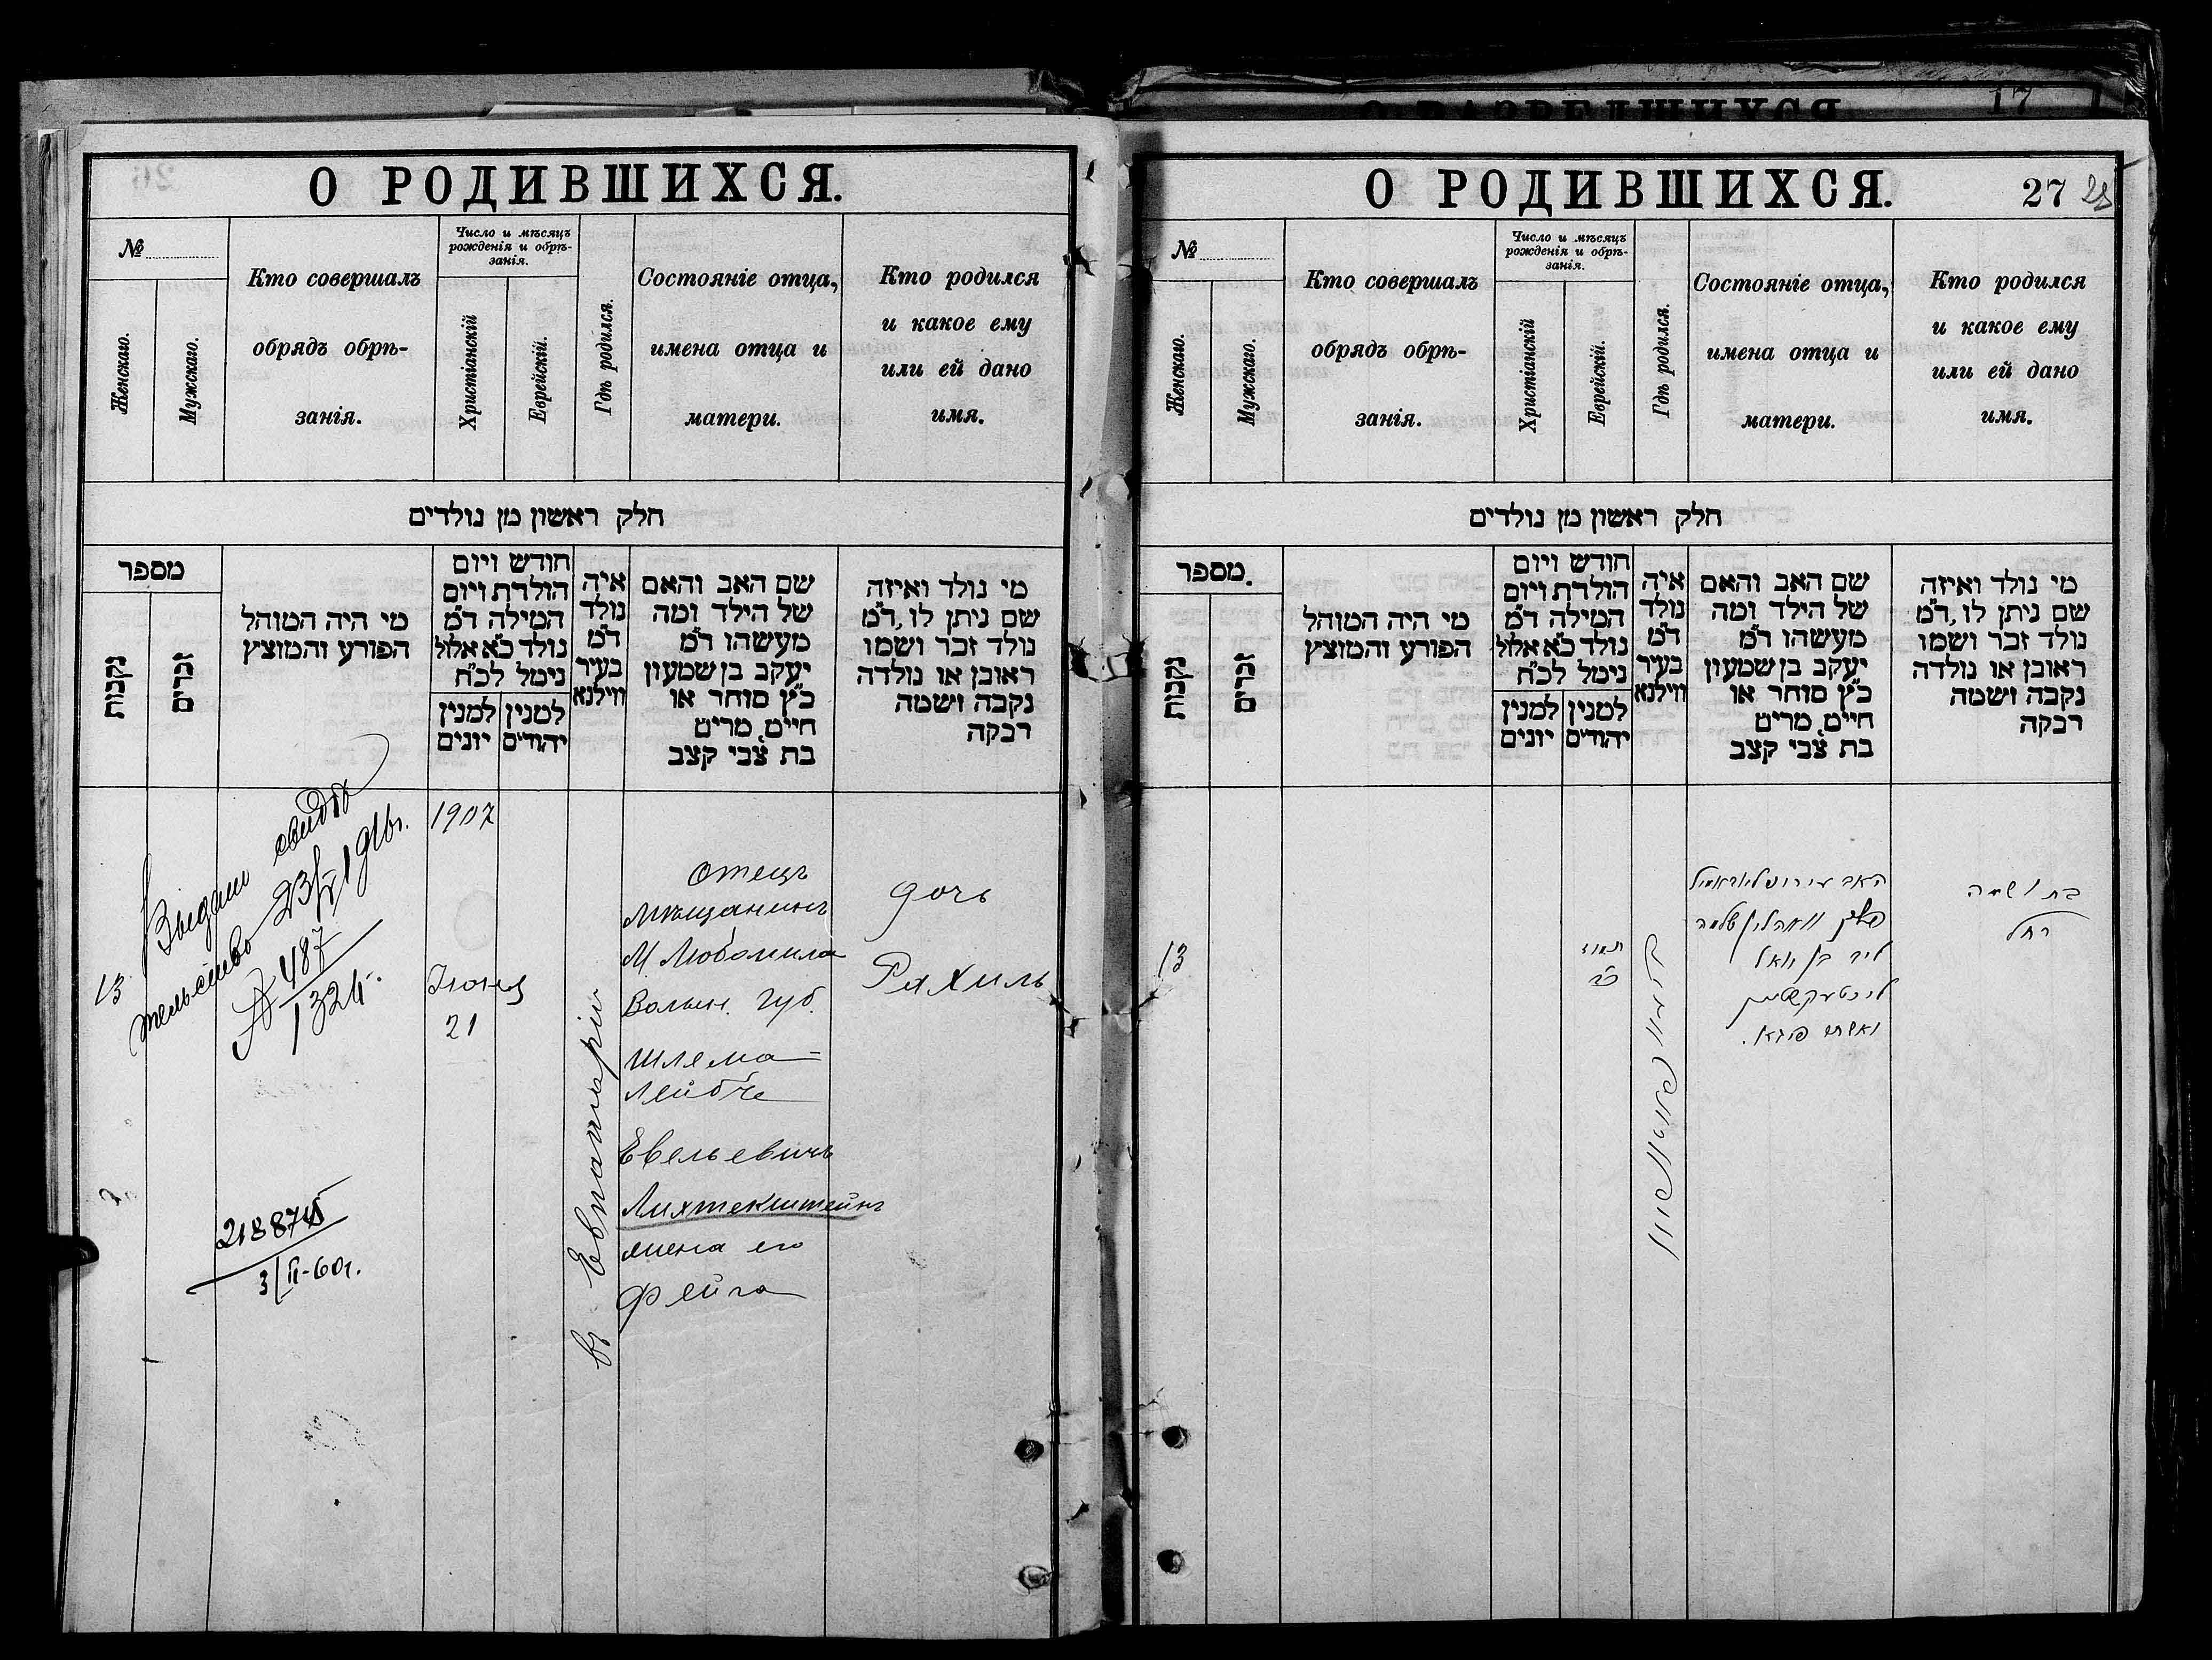 О РОДИВШИХСЯ.
№
Женскаго.
Мужскаго.
Кто совершалъ
обрядъ обрѣ-
занія.
Число и мѣсяцъ
рожденія и обрѣ-
занія.
Христіанскій
Еврейскій.
Гдѣ родился.
Состояніе отца,
имена отца и
матери.
Кто родился
и какое ему
или ей дано
имя.
חלק ראשון מן נולדים
מספר
נקבות
זכרים
מי היה המוהל
הפורע והמוצץ
חודש ויום
הולדת ויום
המילה ד״מ
נולד כ״א אלול
נימל לכ״ח
למנין
יונים
למנין
יהודים
איה
נולד
ד״מ
בעיר
ווילנא
שם האב והאם
של הילד ומה
מעשהו ד״מ
יעקב בן שמעון
כ״ץ סוחר או
חייט, מרים
בת צבי קצב
מי נולד ואיזה
שם ניתן לו, ד״מ
נולד זכר ושמו
ראובן או נולדה
נקבה ושמה
רבקה
13
Выдано свидѣ
тельство 23/ 1916г.
№ 487
1324.
218874
3/II-60г.
1907
Іюня
21
въ Евпаторіи
Отецъ
Мѣщанинъ
М. Любомила
Волын. губ.
Шлема-
Лейбъ
Евельевичъ
Лихтенштейнъ
жена его
Фейга
дочь
Рахиль
17
О РОДИВШИХСЯ.
27
28
№
Женскаго.
Мужскаго.
Кто совершалъ
обрядъ обрѣ-
занія.
Число и мѣсяцъ
рожденія и обрѣ-
занія.
Христіанскій
Еврейскій.
Гдѣ родился.
Состояніе отца,
имена отца и
матери.
Кто родился
и какое ему
или ей дано
имя.
חלק ראשון מן נולדים
מספר.
נקבות
זכרים
מי היה המוהל
הפורע והמוצץ
חודש ויום
הולדת ויום
המילה ד״מ
נולד כ״א אלול
נימל לכ״ח
למנין
יונים
למנין
יהודים
איה
נולד
ד״מ
בעיר
ווילנא
שם האב והאם
של הילד ומה
מעשהו ד״מ
יעקב בן שמעון
כ״ץ סוחר או
חייט, מרים
בת צבי קצב
מי נולד ואיזה
שם ניתן לו, ד״מ
נולד זכר ושמו
ראובן או נולדה
נקבה ושמה
רבקה
13
תמוז
האב
שלמה
ליב בן
ואשתו פייגא.
בת ושמה
רחל